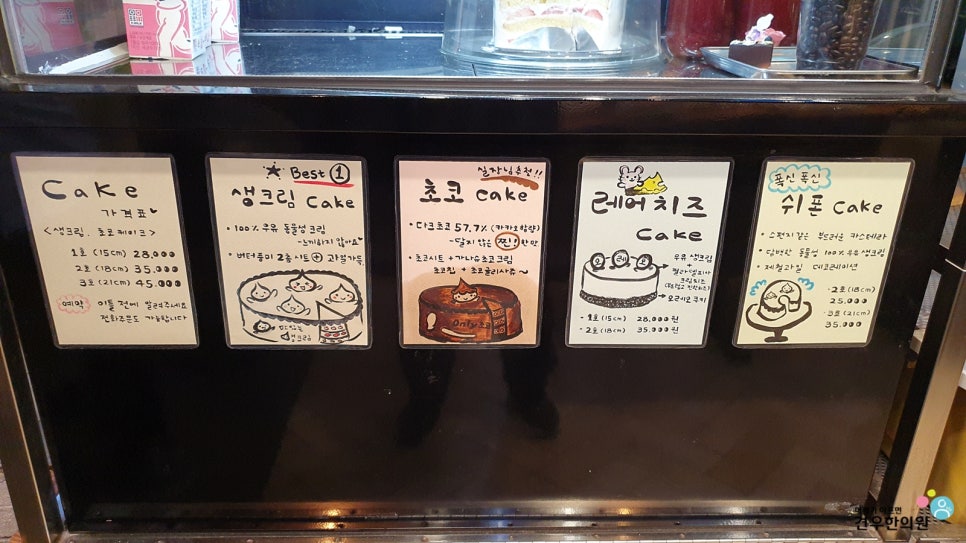 Cake
가격표
<생크림. 초코케이크>
1호 (15cm) 28,000
2호 (18cm) 35,000
3호 (21cm) 45,000
예약 이틀 전에 알려주세요
전화주문도 가능합니다
Best 1
생크림 Cake
• 100% 우유 동물성 크림
~느끼하지 않아요
• 버터풍미 2층시트 + 과일가득
생크림
실장님추천!!
초코 Cake
• 다크초코 57.7% (카카오함량)
- 달지 않은 찐! 한맛
• 초코시트 + 가나슈초코크림
초코칩 + 초코글라사쥬~
Only초코
레어치즈
Cake
오 레 오
우유 생크림
+
필라델피아
크림치즈
오레오 쿠키
- 1호 (15cm) 28,000원
- 2호 (18cm) 35,000원
폭신폭신
쉬폰 Cake
• 스펀지같은 부드러운 카스테라
• 담백한 동물성 100% 우유생크림
• 제철과일 데코레이션
· 2호 (18cm)
25,000
· 3호 (21cm)
35,000
건우한의원